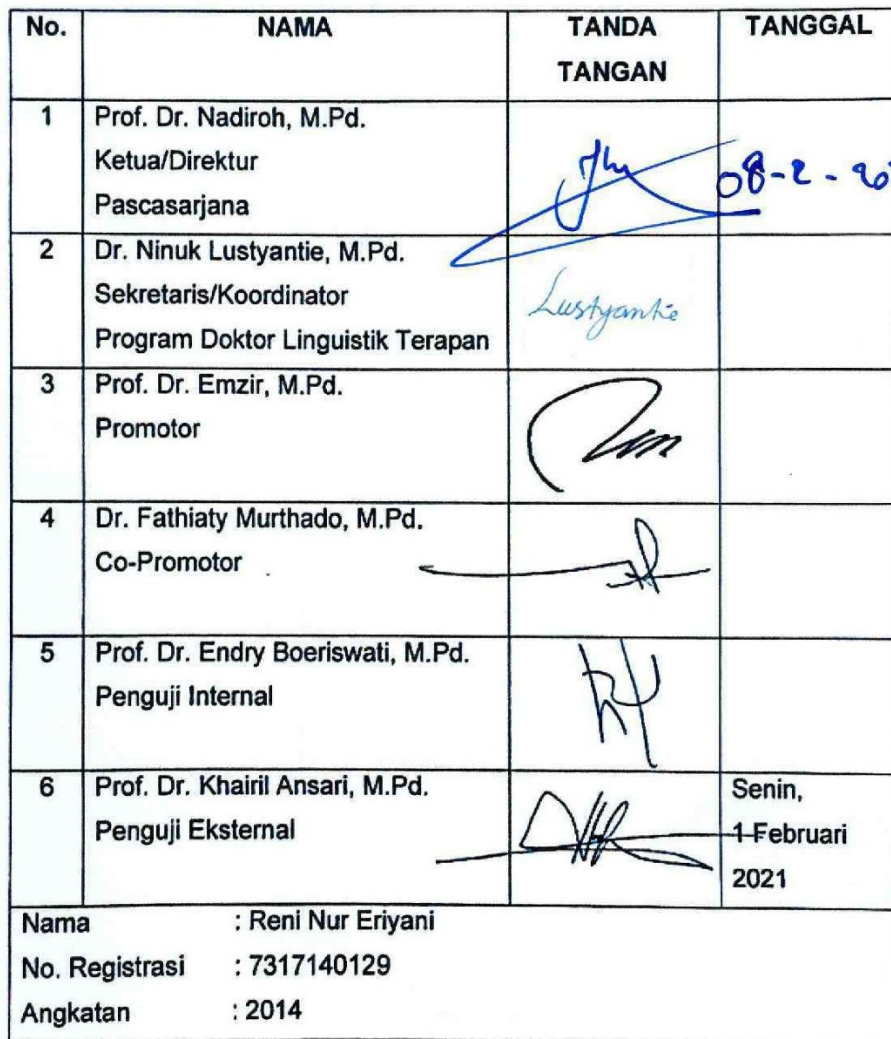 No. NAMA TANDA TANGAN TANGGAL
1 Prof. Dr. Nadiroh, M.Pd.
Ketua/Direktur
Pascasarjana
08-2-20
2 Dr. Ninuk Lustyantie, M.Pd.
Sekretaris/Koordinator
Program Doktor Linguistik Terapan
Lustyantie
3 Prof. Dr. Emzir, M.Pd.
Promotor
4 Dr. Fathiaty Murthado, M.Pd.
Co-Promotor
5 Prof. Dr. Endry Boeriswati, M.Pd.
Penguji Internal
6 Prof. Dr. Khairil Ansari, M.Pd.
Penguji Eksternal
Senin,
1 Februari
2021
Nama : Reni Nur Eriyani
No. Registrasi : 7317140129
Angkatan : 2014